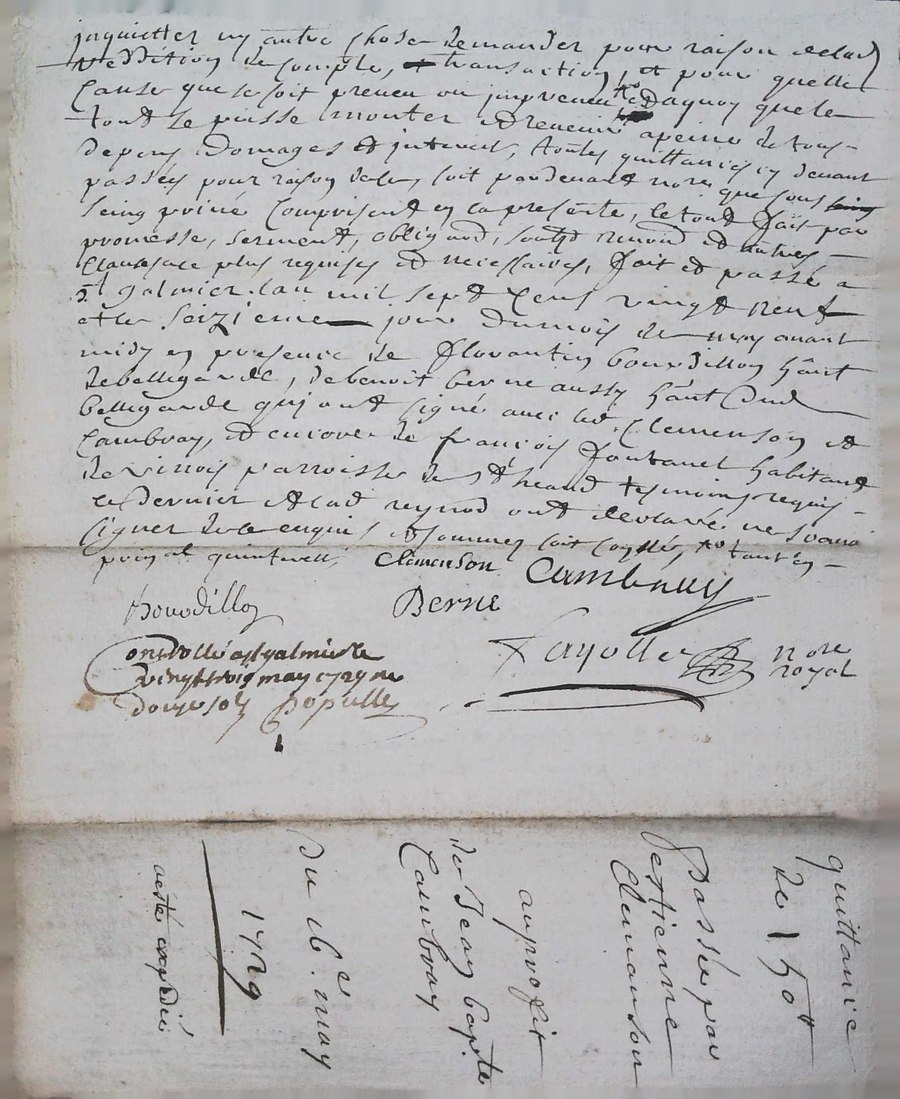 inquietter ny autre chose demander pour raison de lad
reddition de compte, transaction, et pour quelle
cause que ce soit preveu ou impreveu et aquoy que le
tout se puisse monter et revenir apeine de tous
depens domages et interest, toutes quittances cy devant
passées pour raison de ce, soit pardevant nore que sous
seing privé comprises en la presente, le tout fait par
promesse, serment, obligaōns, renonōns et autres
clauses plus requises et necessaires, fait et passé a
St galmier lan mil sept cens vingt neuf
et le seizieme jour du mois de may avant
midy en presence de florantin bourdillon hânt
de bellegarde, de benoit berne aussy hânt dud
bellegarde qui ont signé avec led Clemenson et
Cambray, et encore de françois fontanel habitant
de vinois parroisse de St heand tesmoins requis
ce dernier et lad reynod ont declaré ne scavoir
signer de ce enquis et sommés
Clemenson Cambray
Bourdillon Berne
Controllé a st galmier le
vingt trois may 1729 reçu
douze sols Populle
Fayolle nore
royal
quittance
de 150 lt
Passée par
estienne
Clemanson
au profit
de Jean bapte
Cambray
du 16e may
1729
a esté expedié